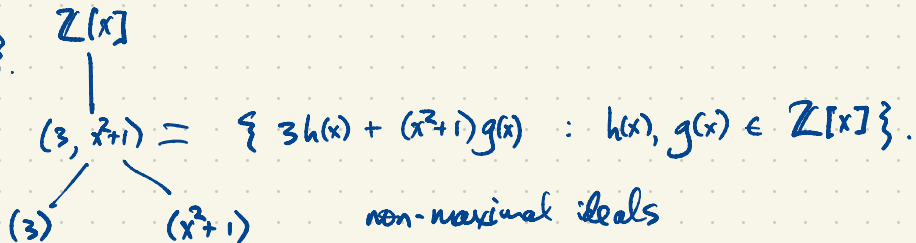 ℤ[x]
}.
(3, x²+1) = { 3h(x) + (x²+1)g(x) : h(x), g(x) ∈ ℤ[x]}.
(3) (x²+1) non-maximal ideals